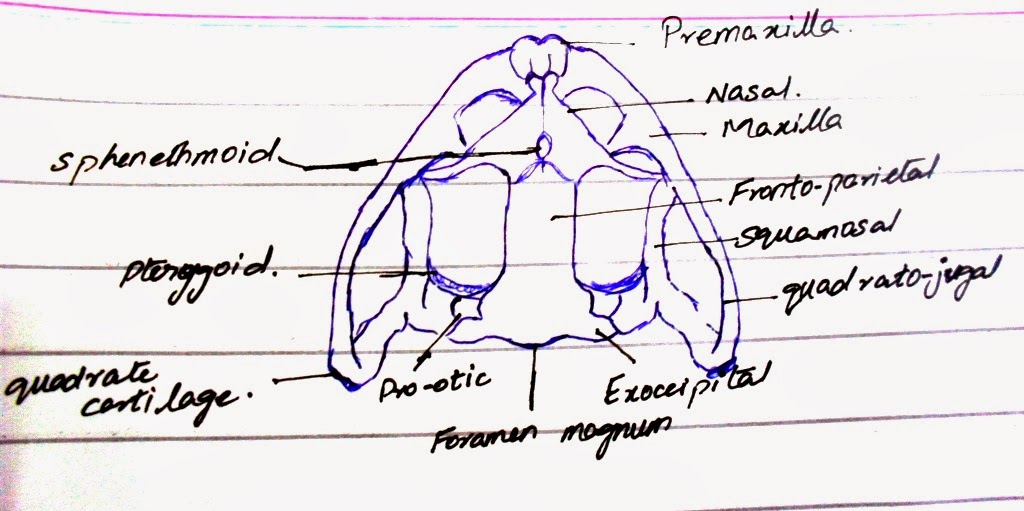 Premaxilla.
Nasal.
Maxilla
sphenethmoid
Fronto-parietal
squamosal
pterygoid.
quadrato-jugal
quadrate
cartilage.
Pro-otic
Exoccipital
Foramen magnum